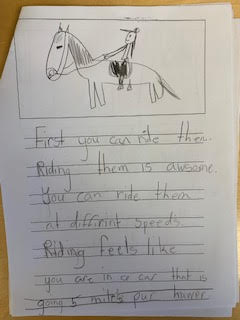 First you can ride them.
Riding them is awsome.
You can ride them
at diffirint speeds.
Riding feels like
you are in a car that is
going 5 mile's pur huwer